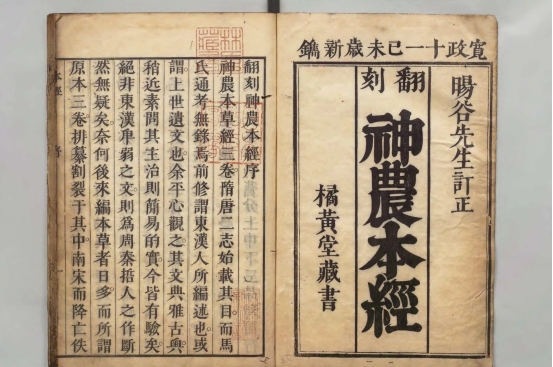 寬政十一己未歲新鐫
暘谷先生訂正
翻刻
神農本經
橘黃堂藏書
翻刻神農本草經序
神農本草經三卷隋唐二志始載其目而馬
氏通考無錄焉前修謂東漢人所編述也或
謂上世遺文也余平心觀之其文典雅古奧
稍近素問其主治則簡易的實今皆有驗矣
絕非東漢卑弱之文則爲周秦哲人之作斷
然無疑矣奈何後來編本草者日多而所謂
原本三卷排纂割裂于其中南宋而降亡佚
本經
序